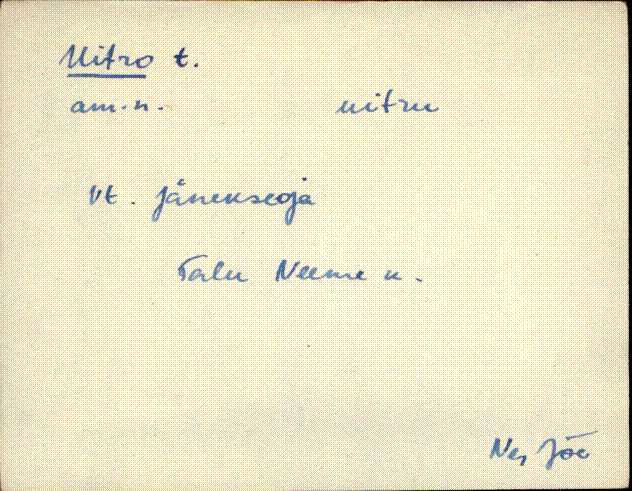 Uitro t.
am.n. uitru
Vt. Jäneksegja
Talu Neeme k.
Neg Jõe